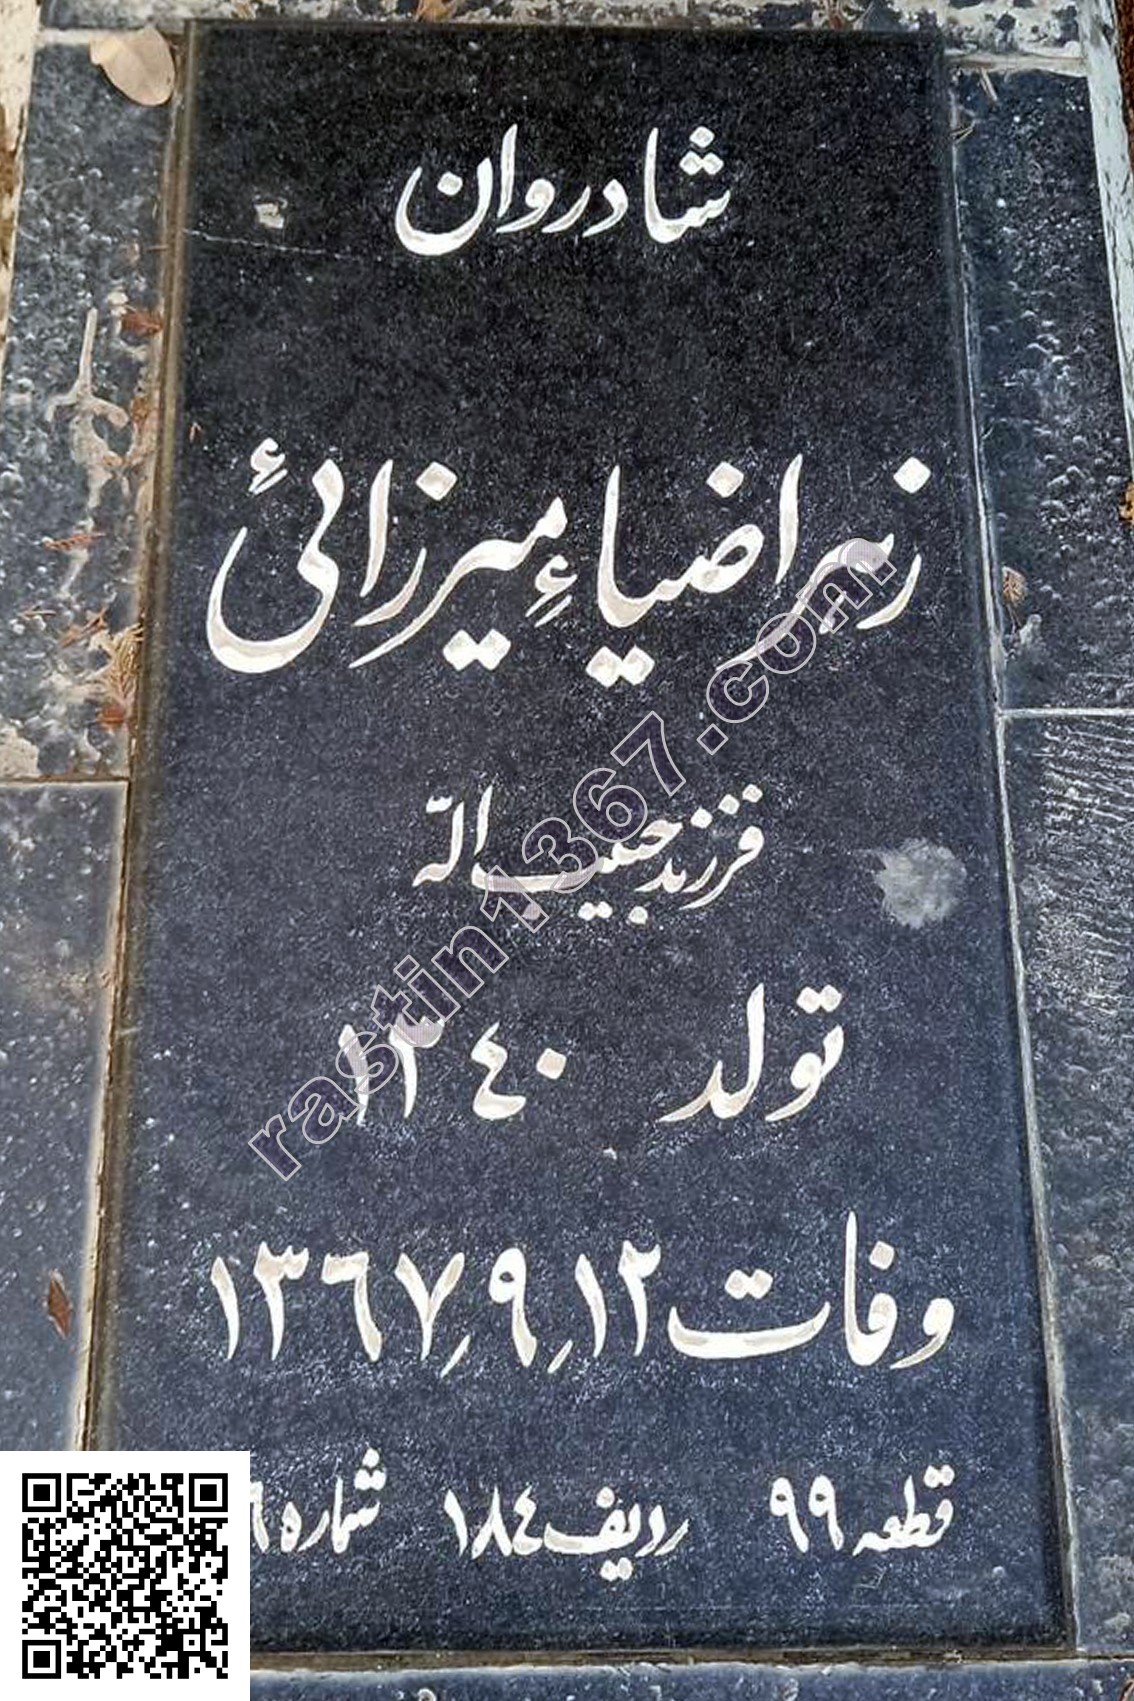 شادروان
زهرا ضیاءِ میرزائیٔ
فرزند حبیب الّه
تولد ۱۳۴۰
وفات ۱۳۶۷٫۹٫۱۲
قطعه ۹۹ ردیف ۱۸٤ شماره ۶
rastin1367.com